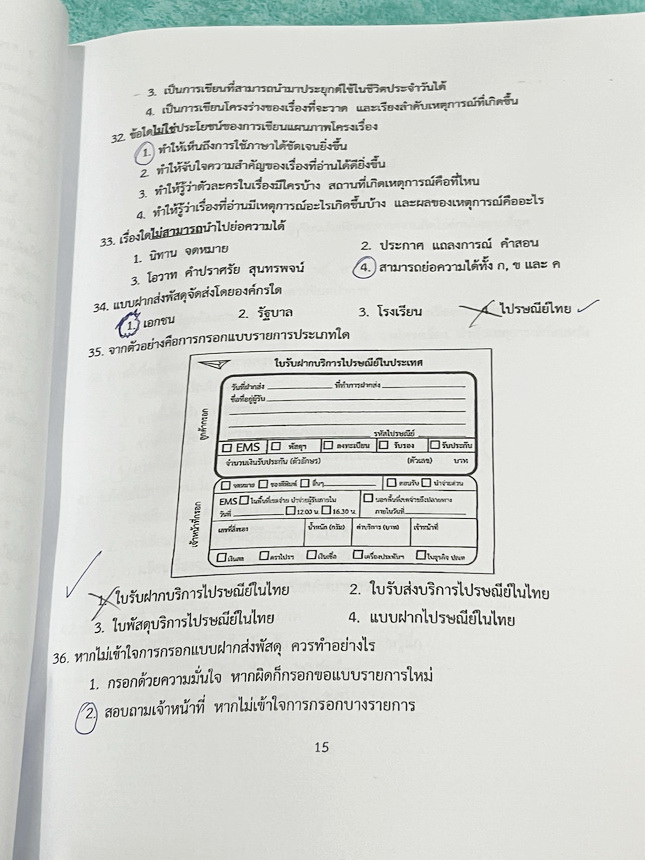 3. เป็นการเขียนที่สามารถนำมาประยุกต์ใช้ในชีวิตประจำวันได้
4. เป็นการเขียนโครงร่างของเรื่องที่จะวาด และเรียงลำดับเหตุการณ์ที่เกิดขึ้น
32. ข้อใดไม่ใช่ประโยชน์ของการเขียนแผนภาพโครงเรื่อง
1. ทำให้เห็นถึงการใช้ภาษาได้ชัดเจนยิ่งขึ้น
2. ทำให้จับใจความสำคัญของเรื่องที่อ่านได้ดียิ่งขึ้น
3. ทำให้รู้ว่าตัวละครในเรื่องมีใครบ้าง สถานที่เกิดเหตุการณ์คือที่ไหน
4. ทำให้รู้ว่าเรื่องที่อ่านมีเหตุการณ์อะไรเกิดขึ้นบ้าง และผลของเหตุการณ์คืออะไร
33. เรื่องใดไม่สามารถนำไปย่อความได้
1. นิทาน จดหมาย 2. ประกาศ แถลงการณ์ คำสอน
3. โอวาท คำปราศรัย สุนทรพจน์ 4. สามารถย่อความได้ทั้ง ก, ข และ ค
34. แบบฝากส่งพัสดุจัดส่งโดยองค์กรใด
1. เอกชน 2. รัฐบาล 3. โรงเรียน 4. ไปรษณีย์ไทย
35. จากตัวอย่างคือการกรอกแบบรายการประเภทใด
ใบรับฝากบริการไปรษณีย์ในประเทศ
วันที่ฝากส่ง ที่ทำการฝากส่ง
ชื่อที่อยู่ผู้รับ
รหัสไปรษณีย์
ลูกค้ากรอก
EMS พัสดุฯ ลงทะเบียน รับรอง รับประกัน
จำนวนเงินรับประกัน (ตัวอักษร) (ตัวเลข) บาท
จดหมาย ของตีพิมพ์ อื่นๆ ตอบรับ นำจ่ายด่วน
EMS ในพื้นที่เขตจ่าย นำจ่ายผู้รับภายใน นอกพื้นที่เขตจ่ายถึงปลายทาง
วันที่ 12.00 น. 16.30 น. ภายในวันที่
เจ้าหน้าที่กรอก
เลขที่สิ่งของ น้ำหนัก (กรัม) ค่าบริการ (บาท) เจ้าหน้าที่
เงินสด ตราไปรฯ เงินเชื่อ เครื่องประทับฯ ใบธุรกิจ ปณท
1. ใบรับฝากบริการไปรษณีย์ในไทย 2. ใบรับส่งบริการไปรษณีย์ในไทย
3. ใบพัสดุบริการไปรษณีย์ในไทย 4. แบบฝากไปรษณีย์ในไทย
36. หากไม่เข้าใจการกรอกแบบฝากส่งพัสดุ ควรทำอย่างไร
1. กรอกด้วยความมั่นใจ หากผิดก็กรอกขอแบบรายการใหม่
2. สอบถามเจ้าหน้าที่ หากไม่เข้าใจการกรอกบางรายการ
15